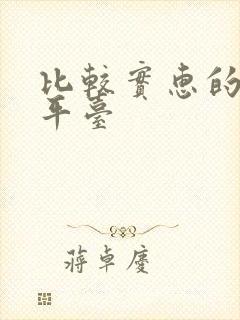 比較實惠的
平臺
蔣卓慶